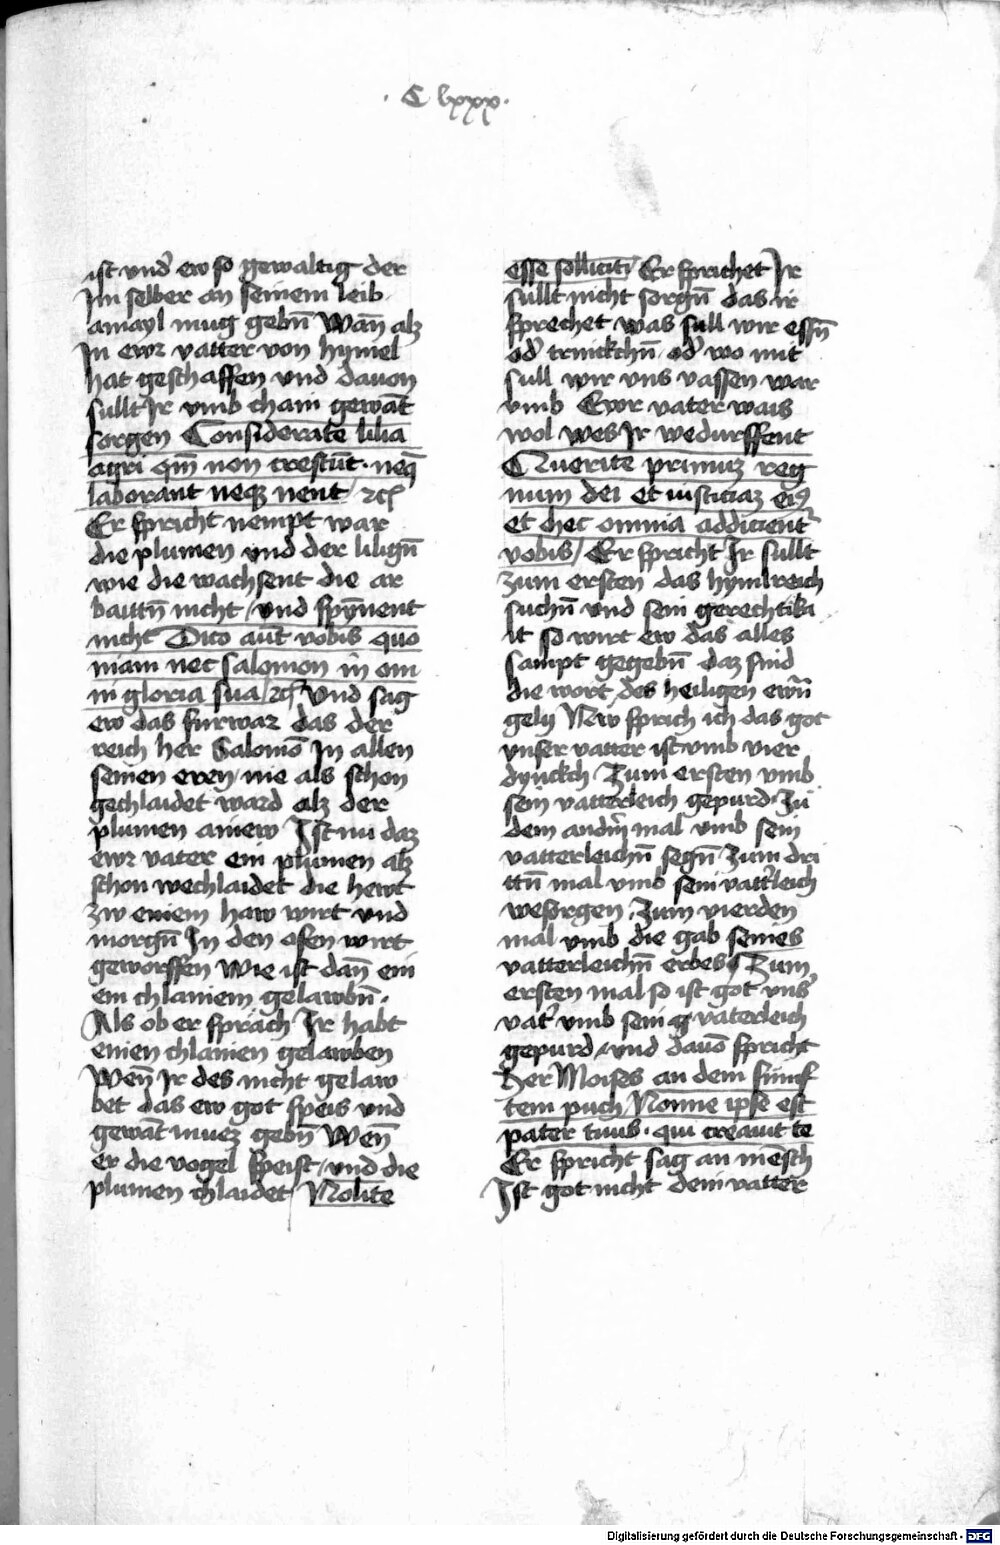 · C lxxx ·
ist und̕ ew so gewaltig der
Im selber an seinem leib
amayl mug gebn̄ Wan̄ alz
In ewr vatter von hymel
hat geschaffen und davon
sullt Ir vmb chain gewāt
sorgen Considerate lilia
agri qm̄ non crescūt · neq̄
laborant neqꝫ nent / ⁊cꝭ
Er spricht nempt war
die plumen vnd der lilign̄
wie die wachsent die ar
baittn̄ nicht / und spȳnent
nicht Dico aūt vobis quo
niam nec salomon in om
ni gloria sua / ⁊cꝭ Und sag
ew das furwar das der
reich her Salomō In allen
seinen eren nie als schon
gechlaidet ward alz der
plumen ainew Ist nu daz
ewr vater ein plumen alz
schon wechlaidet die hewt
zw einem haw wirt vnd
morgn̄ In den ofen wirt
geworffen wie ist dan̄ ein
em chlainem gelawbn̄ ·
Als ob er spräch Ir habt
einen chlainen gelawben
Wen̄ Ir des nicht gelaw
bet das ew got speis vnd
gewāt muez gebn̄ Wen̄
er die vogel speist / und die
plumen chlaidet Nolite
esse solliciti / Er sprichet Ir
sullt nicht sorgn̄ das ir
sprechet was sull wir essn̄
od̕ trinckchn̄ od̕ wo mit
sull wir vns vassen war
vmb Ewr vater wais
wol wes Ir wedurffent
Querite primuꝫ reg
num dei et iusticiaꝫ eiꝰ
et hec omnia addicient᷑
vobis / Er spricht Ir sullt
zum ersten das hymlreich
suchn̄ vnd sein gerechtiki
it so wirt ew das alles
sampt gegebn̄ daz sind
die wort des heiligen ewn̄
gely Nw sprich ich das got
vnser vatter ist vmb vier
dynckch Zum ersten vmb
sein vatterleich gepurd · Zu
dem andn̄ mal vmb sein
vatterleichn̄ segn̄ Zum dri
ttn̄ mal vmb sein vatt̕leich
wesorgen · Zum vierden
mal vmb die gab seines
vatterleichn̄ erbes Zum
ersten mal so ist got vns̕
vat̕ vmb sein g vaterleich
gepurd / und davō spricht
her Moises an dem funf
tem puch / Nonne ipse est
pater tuus · qui creauit te
Er spricht sag an mēsch
Ist got nicht dein vatter
Digitalisierung gefördert durch die Deutsche Forschungsgemeinschaft - DFG